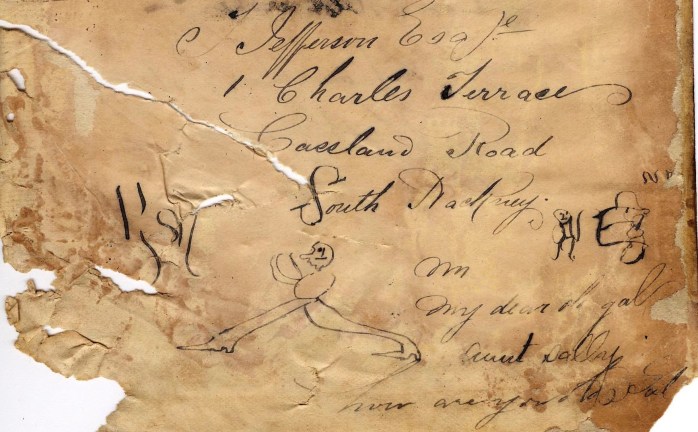 Jefferson Esqre
1 Charles Terrace
Cassland Road
South Hackney
My dear old gal
Aunt Sally
how are you